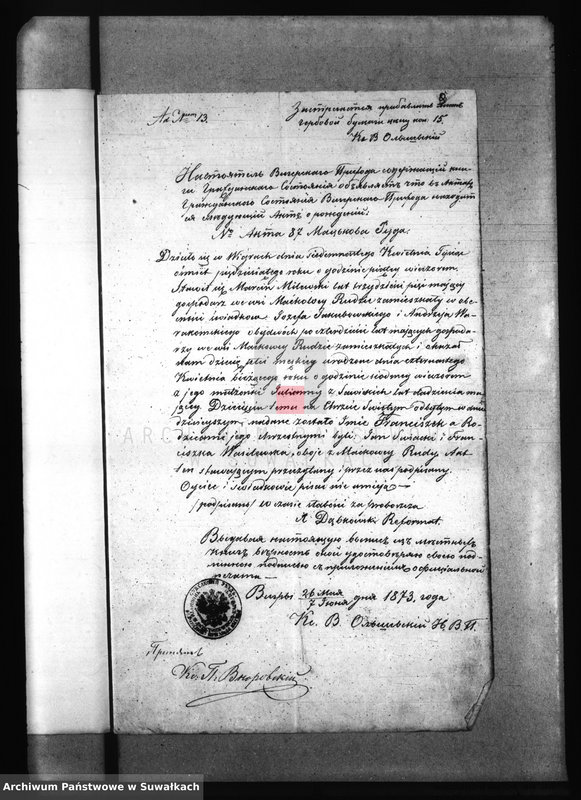 Ad N 13.
Застрягается прибавлять
гербовой бумаги цену коп. 15.
Кс. В Ольшевскій
Настоятель Вигерскаго Прихода содержащій кни-
ги Гражданскаго Состоянія объявляетъ что въ Актахъ
Гражданскаго Состоянія Вигерскаго Прихода находит
ся слѣдующій Актъ о рожденіи:
№ Акта 87 Мацькова Руда.
Działo się w Wigrach dnia siedemnastego Kwietnia Tysiąc
ośmset pięćdziesiątego roku o godzinie piątej wieczorem.
Stawił się Marcin Milewski lat trzydzieści pięć mający
gospodarz we wsi Maćkowej Rudzie zamieszkały w obe-
cności świadków Józefa Jakubowskiego i Andrzeja
obydwóch po czterdzieści lat mających gospoda-
rzy we wsi Maćkowej Rudzie zamieszkałych i okazał
Nam dziecię płci męskiej urodzone dnia czternastego
Kwietnia bieżącego roku o godzinie siódmej wieczorem
z jego małżonki Julianny z Sawickich lat dwadzieścia ma-
jącej Dziecięciu temu na Chrzcie Świętym odbytym w dniu
dzisiejszym, nadane zostało Imie Franciszek a Ro-
dzicami jego chrzestnymi byli Jan i Fran-
ciszka Wasilewska, oboje z Maćkowej Rudy. Akt
ten stawającym przeczytany i przez nas podpisany.
Ojciec i Świadkowie pisać nie umieją —
/podpisano/ w czasie słabości za proboszcza
A. Dąbkowski Reformat.
Выдавая настоящую выпись изъ метричныхъ
книгъ вѣрность оной удостовѣряю своею под-
писью съ приложеніемъ оффиціальной
печати —
Вигры 26 Мая
7 Іюня дня 1873. года
Кс. В. Ольшевскій Н. В. П.
Кс. П. Вноровскій
Archiwum Państwowe w Suwałkach